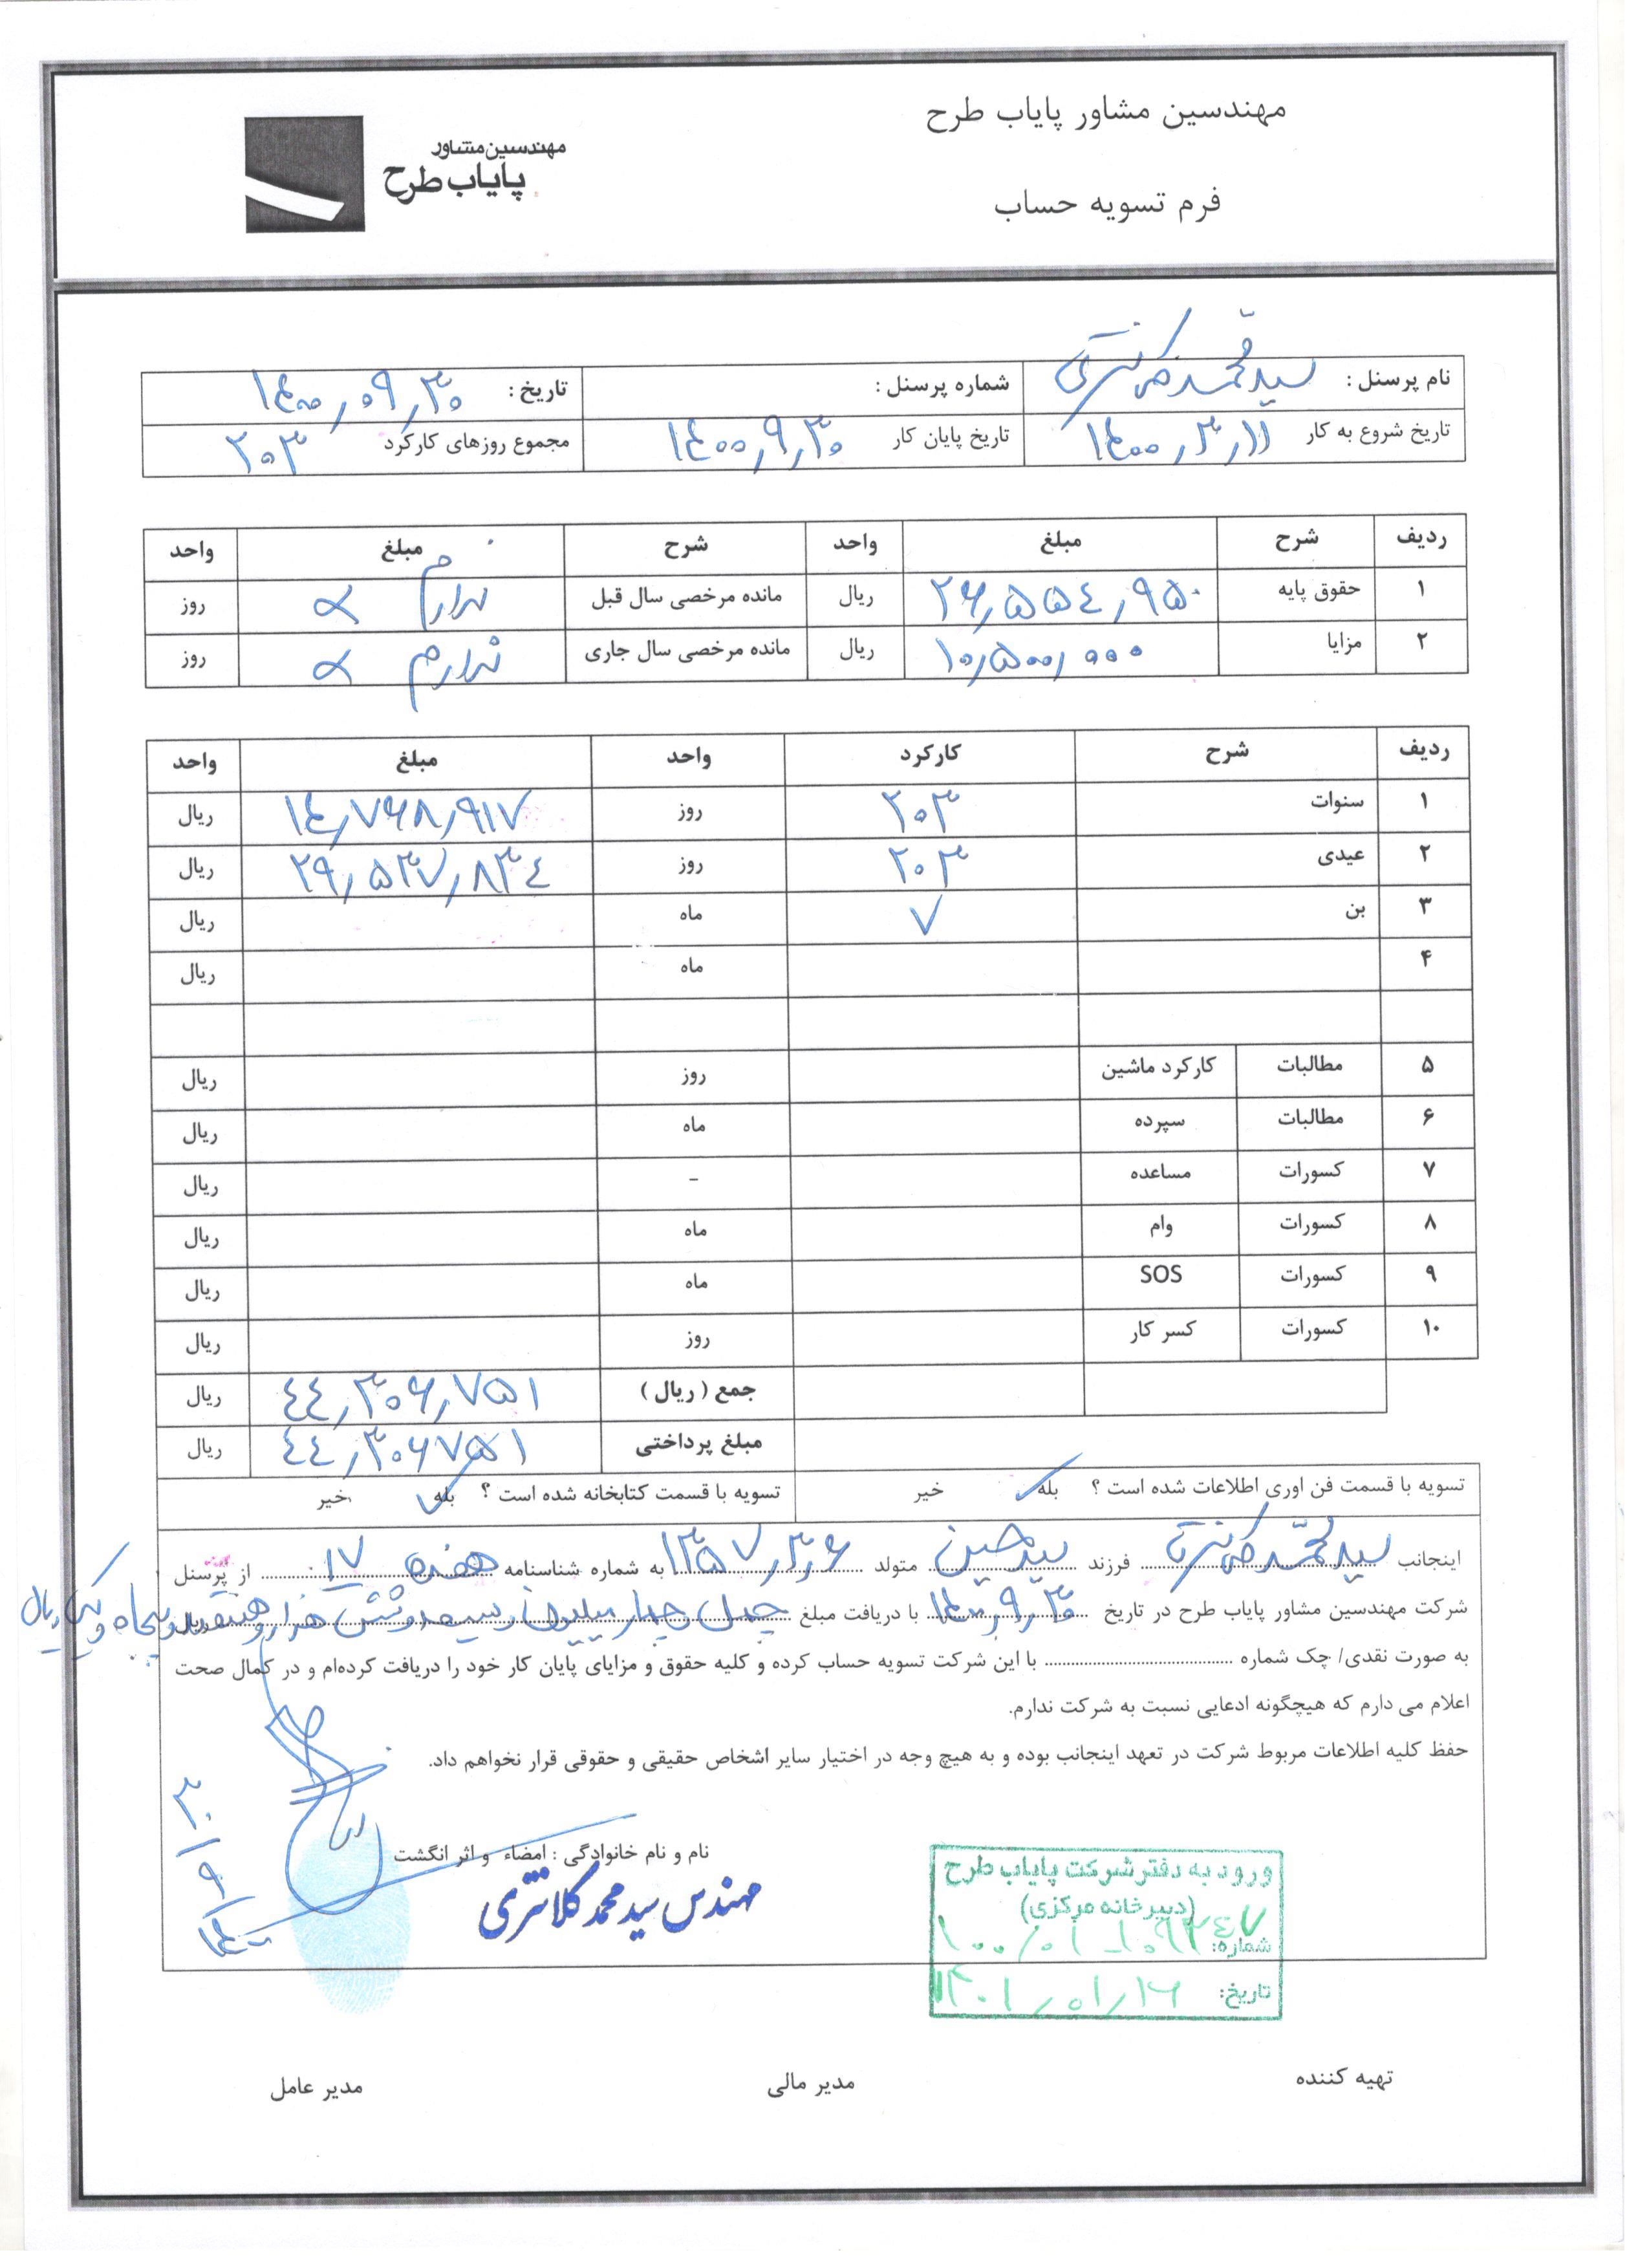 مهندسین مشاور پایاب طرح
مهندسین مشاور
پایاب طرح
فرم تسویه حساب
نام پرسنل : سید محمد کلانتری شماره پرسنل : تاریخ : ۱۴۰۰,۰۹,۳۰
تاریخ شروع به کار ۱۴۰۰,۳,۱۱ تاریخ پایان کار ۱۴۰۰,۹,۳۰ مجموع روزهای کارکرد ۲۰۳
ردیف شرح مبلغ واحد شرح مبلغ واحد
۱ حقوق پایه ۲۶,۵۵۴,۹۵۰ ریال مانده مرخصی سال قبل ندارم روز
۲ مزایا ۱۰,۵۰۰,۰۰۰ ریال مانده مرخصی سال جاری ندارم روز
ردیف شرح کارکرد واحد مبلغ واحد
۱ سنوات ۲۰۳ روز ۱۴,۷۶۸,۹۱۷ ریال
۲ عیدی ۲۰۳ روز ۲۹,۵۳۷,۸۳۴ ریال
۳ بن ۷ ماه ریال
۴ ماه ریال
۵ مطالبات کارکرد ماشین روز ریال
۶ مطالبات سپرده ماه ریال
۷ کسورات مساعده - ریال
۸ کسورات وام ماه ریال
۹ کسورات SOS ماه ریال
۱۰ کسورات کسر کار روز ریال
جمع ( ریال ) ۴۴,۳۰۶,۷۵۱ ریال
مبلغ پرداختی ۴۴,۳۰۶۷۵۱ ریال
تسویه با قسمت فن اوری اطلاعات شده است ؟ بله خیر تسویه با قسمت کتابخانه شده است ؟ بله خیر
اینجانب سید محمد کلانتری فرزند سید حسین متولد ۱۳۵۷,۳,۶ به شماره شناسنامه هفده ۱۷ از پرسنل
شرکت مهندسین مشاور پایاب طرح در تاریخ ۱۴۰۰,۹,۳۰ با دریافت مبلغ چهل و چهار میلیون و سیصد و شش هزار و هفتصد و پنجاه و یک ریال
به صورت نقدی/ چک شماره با این شرکت تسویه حساب کرده و کلیه حقوق و مزایای پایان کار خود را دریافت کرده‌ام و در کمال صحت
اعلام می دارم که هیچگونه ادعایی نسبت به شرکت ندارم.
حفظ کلیه اطلاعات مربوط شرکت در تعهد اینجانب بوده و به هیچ وجه در اختیار سایر اشخاص حقیقی و حقوقی قرار نخواهم داد.
نام و نام خانوادگی : امضاء و اثر انگشت
مهندس سید محمد کلانتری
ورود به دفتر شرکت پایاب طرح
(دبیرخانه مرکزی)
شماره:
تاریخ: ۱۴۰۱,۰۱,۱۶
تهیه کننده مدیر مالی مدیر عامل